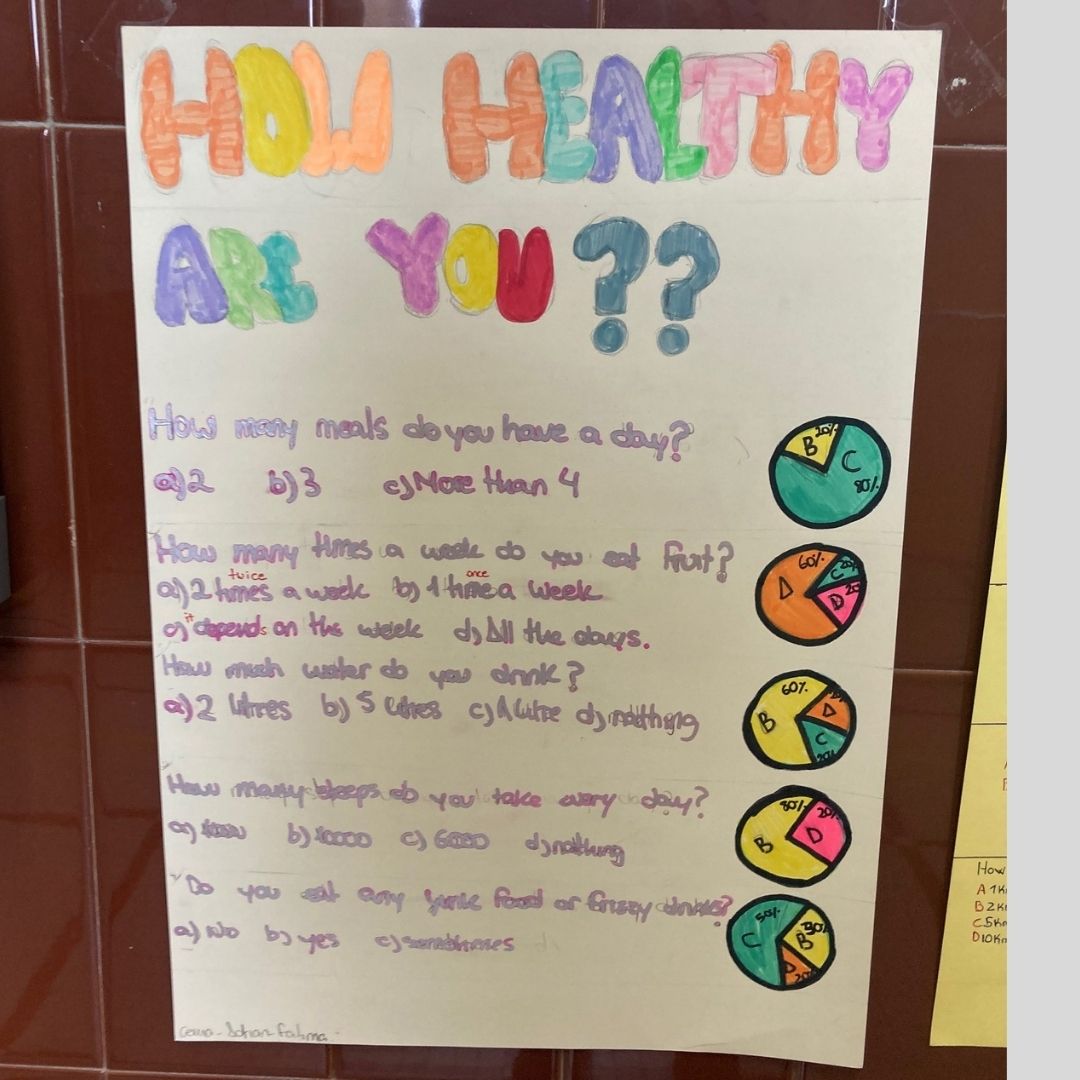 HOW HEALTHY
ARE YOU??
How many meals do you have a day?
a) 2 b) 3 c) More than 4
B 20% C 80%
How many times a week do you eat fruit?
twice once
a) 2 times a week b) 1 time a week
it
c) depends on the week d) All the days.
D 60% C 20% D 20
How much water do you drink?
a) 2 litres b) 5 litres c) 1 litre d) nothing
B 60% D C 20%
How many steeps do you take every day?
a) b) 10000 c) 6000 d) nothing
B 80% D 20%
Do you eat any junk food or frizzy drinks?
a) No b) yes c) sometimes
C 50% B 30% D 20%
How
A 1K
B 2K
C 5Km
D 10Km